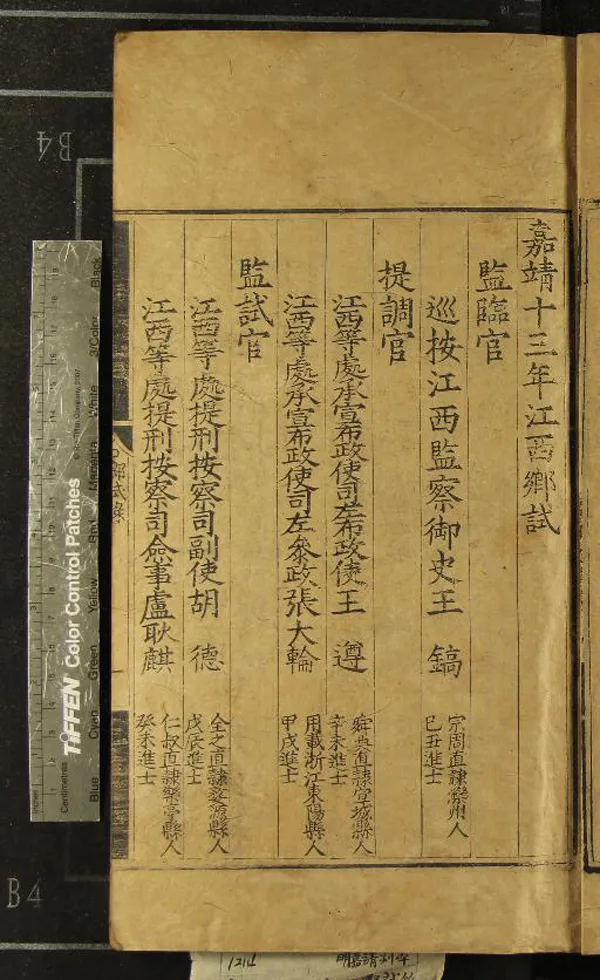 嘉靖十三年江西鄉試
監臨官
巡按江西監察御史王 鎬
宗周直隸灤州人
己丑進士
提調官
江西等處承宣布政使司左布政使王 遵
舜典直隸宣城縣人
辛未進士
江西等處承宣布政使司左叅政張大輪
用載浙江東陽縣人
甲戌進士
監試官
江西等處提刑按察司副使胡 德
全之直隸婺源縣人
戊辰進士
江西等處提刑按察司僉事盧耿麒
仁叔直隸樂亭縣人
癸未進士
B4
B4
TIFFEN Color Control Patches
Blue Cyan Green Yellow Red Magenta White 3/Color Black
Centimetres
1214